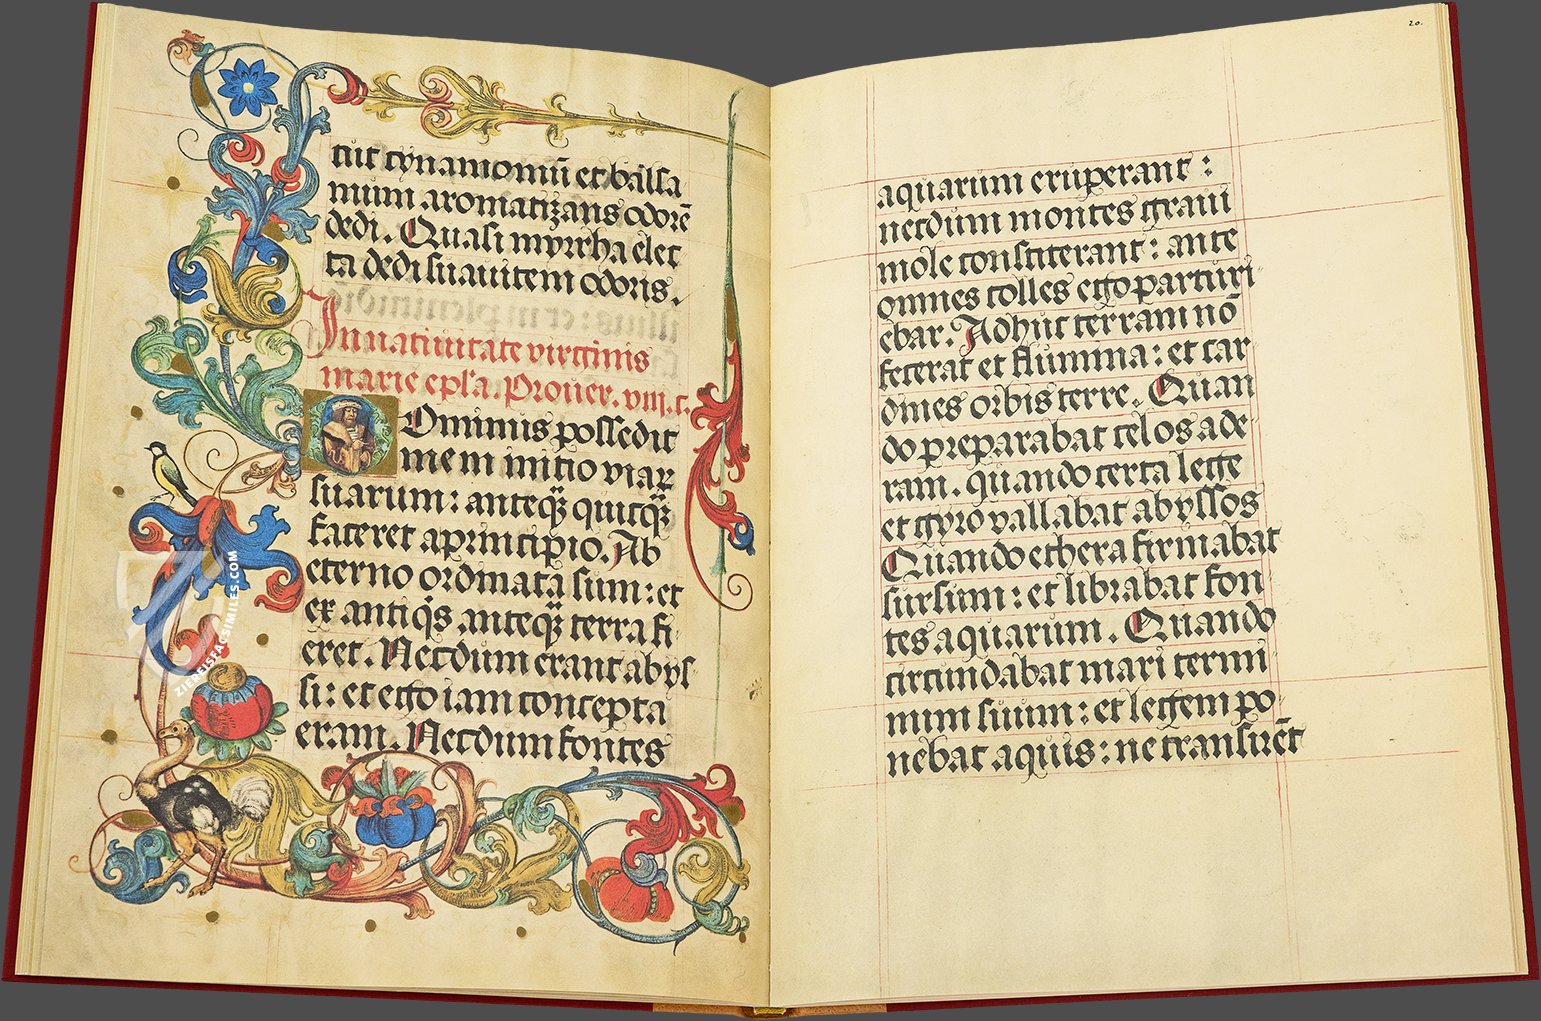 cut cynamomū et balsa
mum aromatizans odorē
dedi. Quasi myrrha elec
ta dedi suauitem odoris.
In natiuitate virginis
marie epl'a. Prouer. viii. c.
Dominus possedit
me in initio viarꝝ
suarum: anteq̄ quicq̄
faceret a principio. Ab
eterno ordinata sum: et
ex antiq̄s anteq̄ terra fi
eret. Necdum erant abys
si: et ego iam concepta
eram. Necdum fontes
20.
aquarum eruperant:
necdum montes graui
mole constiterant: ante
omnes colles ego parturi
ebar. Adhuc terram nō
fecerat et flumina: et car
dines orbis terre. Quan
do preparabat celos ade
ram. quando certa lege
et gyro vallabat abyssos
Quando ethera firmabat
sursum: et librabat fon
tes aquarum. Quando
circundabat mari termi
num suum: et legem po
nebat aquis: ne transirēt
ZIEREISFACSIMILES.COM